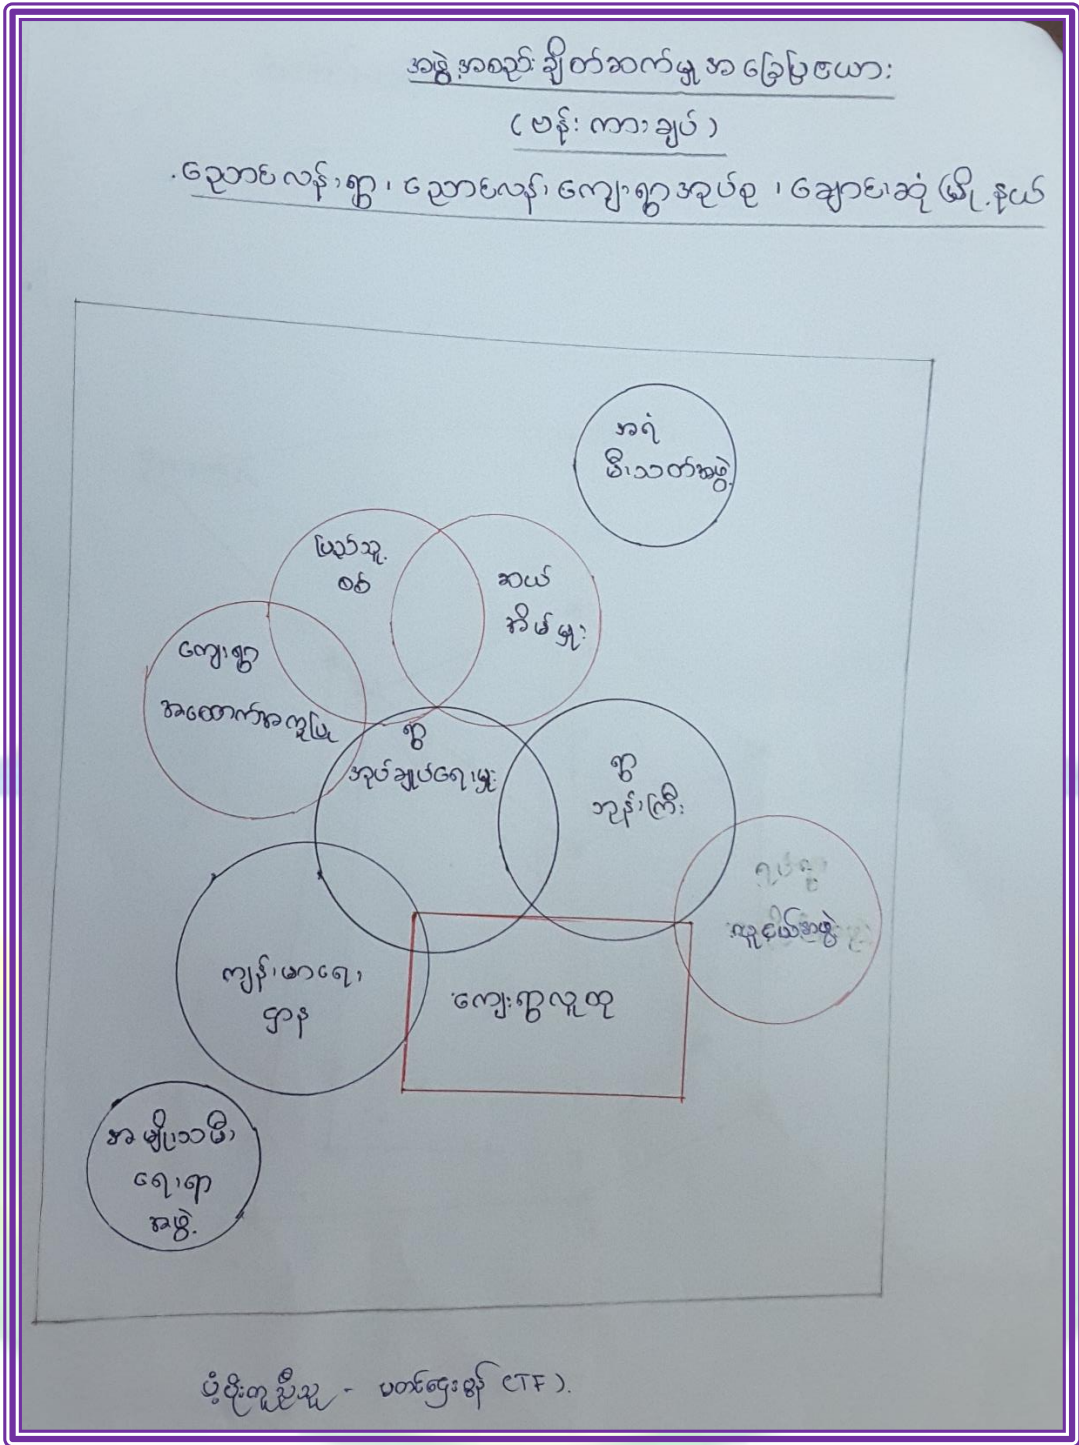 အဖွဲ့အစည်းချိတ်ဆက်မှုအခြေပြဇယား
(ဗန်းကားချပ်)
ညောင်လန်းရွာ၊ ညောင်လန်းကျေးရွာအုပ်စု၊ ချောင်းဆုံမြို့နယ်
အရံ
မီးသတ်အဖွဲ့
ပြည်သူ့
စစ်
ဆယ်
အိမ်မှူး
ကျေးရွာ
အထောက်အကူပြု
ရွာ
အုပ်ချုပ်ရေးမှူး
ရွာ
ဘုန်းကြီး
ရပ်ရွာ
လူငယ်အဖွဲ့
ကျန်းမာရေး
ဌာန
ကျေးရွာလူထု
အမျိုးသမီး
ရေးရာ
အဖွဲ့
ပံ့ပိုးကူညီသူ - မတင်ဌေးစွန် (TF).